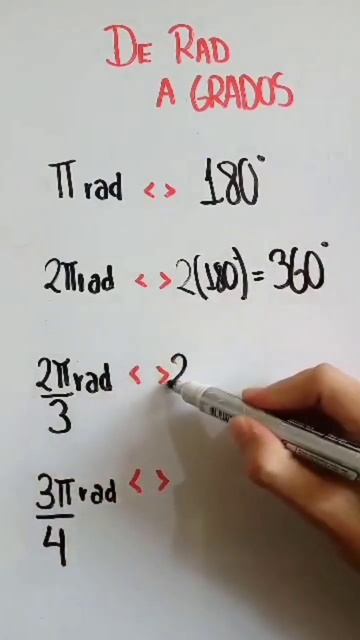 DE RAD
A GRADOS
π rad <> 180°
2π rad <> 2(180°) = 360°
2π/3 rad <> 2
3π/4 rad <>